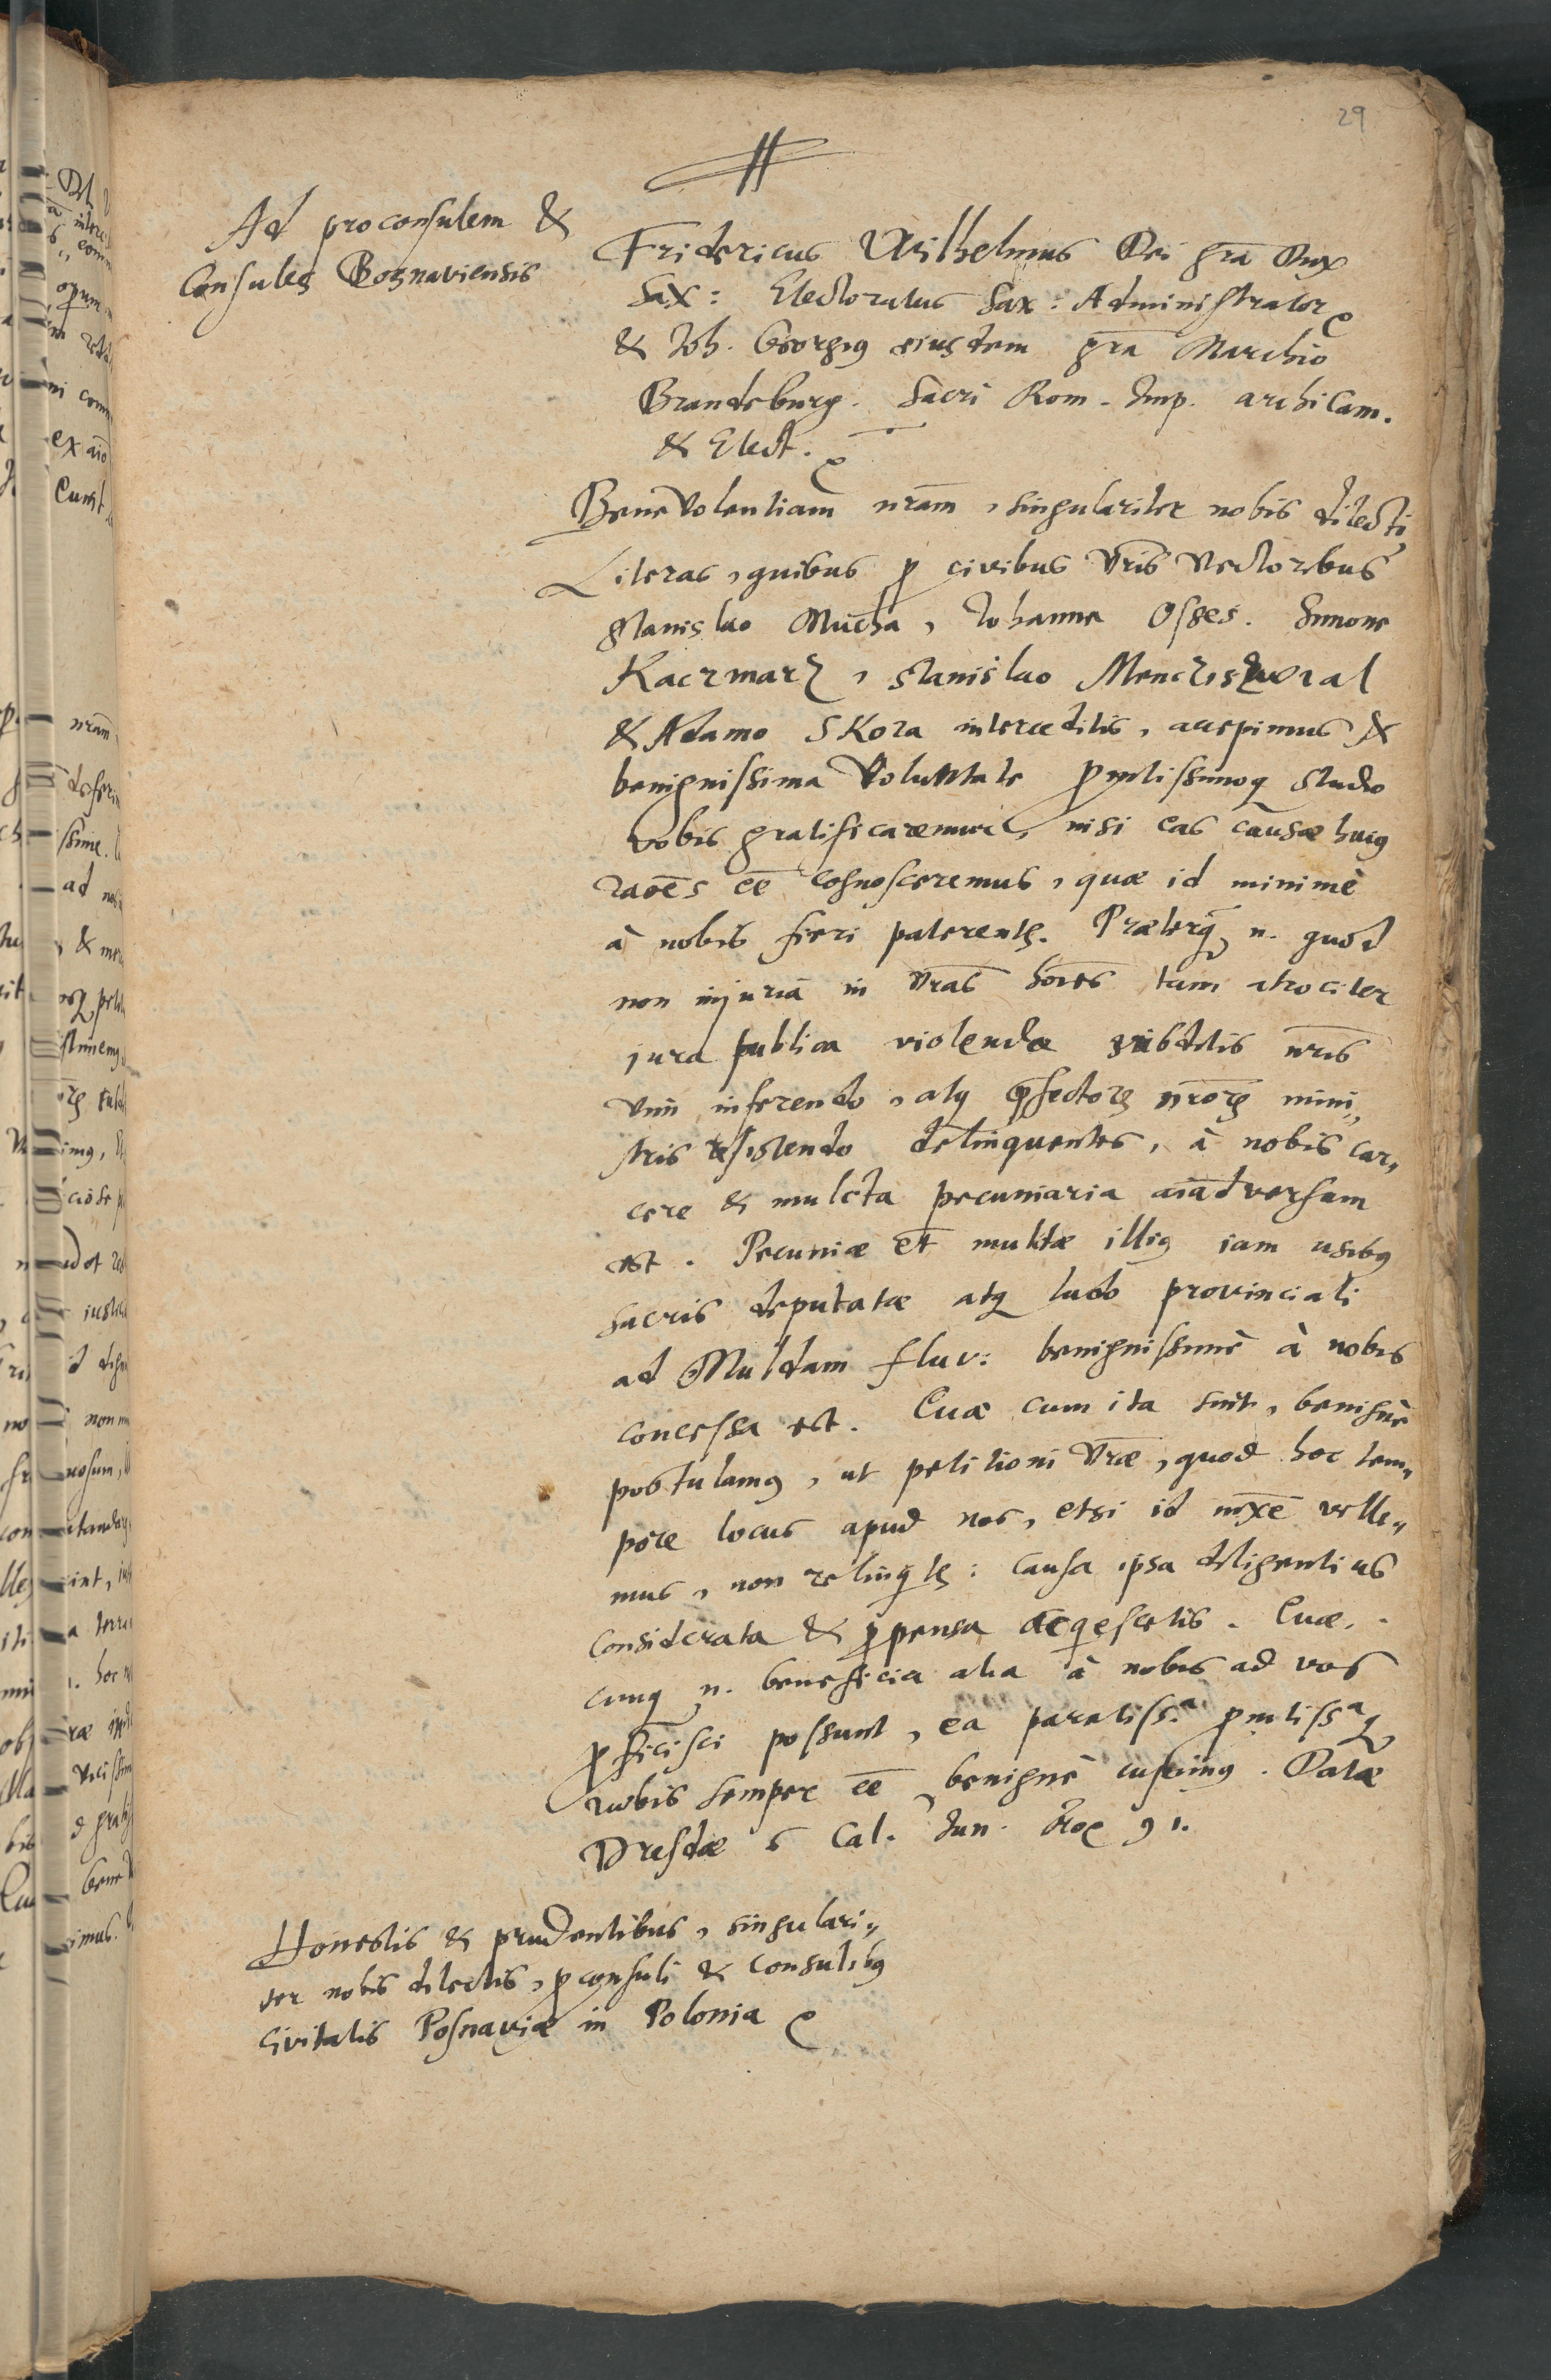 29
Ad proconsulem &
Consules Bosnaviensis
Fridericus Wilhelmus Dei grã Dux
Sax: Electoratus Sax: Administrator
& Joh. Georgius eiusdem grã Marchio
Brandeburg. Sacri Rom. Imp. archicam.
& Elect.
Benevolentiam nrãm, singulariter nobis dilecti
Literas, quibus p civibus vris vectoribus
Stanislao Mucha, Johanne Osses. Simone
Kaczmarz, Stanislao
& Adamo Skora interceditis, accepimus &
benignissima voluntate pmtissimoq studio
vobis gratificaremur, nisi eas causæ huius
raoẽs eẽ cognosceremus, quæ id minimè
à nobis fieri paterentr. Præterq n. quod
non injuriã in vrãs hoĩes tam atrociter
jura publica violendæ subditis nris
vim inferendo, atq pfectorr nrõrr mini„
stris resistendo delinquentes, à nobis car„
cere & mulcta pecuniaria aiãdversum
est. Pecuniæ et̃ multæ illius iam usibus
sacris deputatæ atq ludo provinciali
ad Muldam fluv: benignissimè à nobis
concessa est. Cuæ cum ita sint, benignè
postulamus, ut petitioni vræ, quod hoc tem„
pore locus apud nos, etsi id mxẽ velle„
mus, non relinqtr: causa ipsa diligentius
considerata & ppensa acqescetis. Cuæ„
cunq n. beneficia alia à nobis ad vos
pficisci possunt, ea paratissa pmtissaq
vobis semper eẽ benignè cupimus. Datæ
Dresdæ 6 Cal. Jun. Aõ 91.
Honestis & prudentibus, singulari„
ter nobis dilectis, pconsuli & consulibus
civitatis Posnaviæ in Polonia